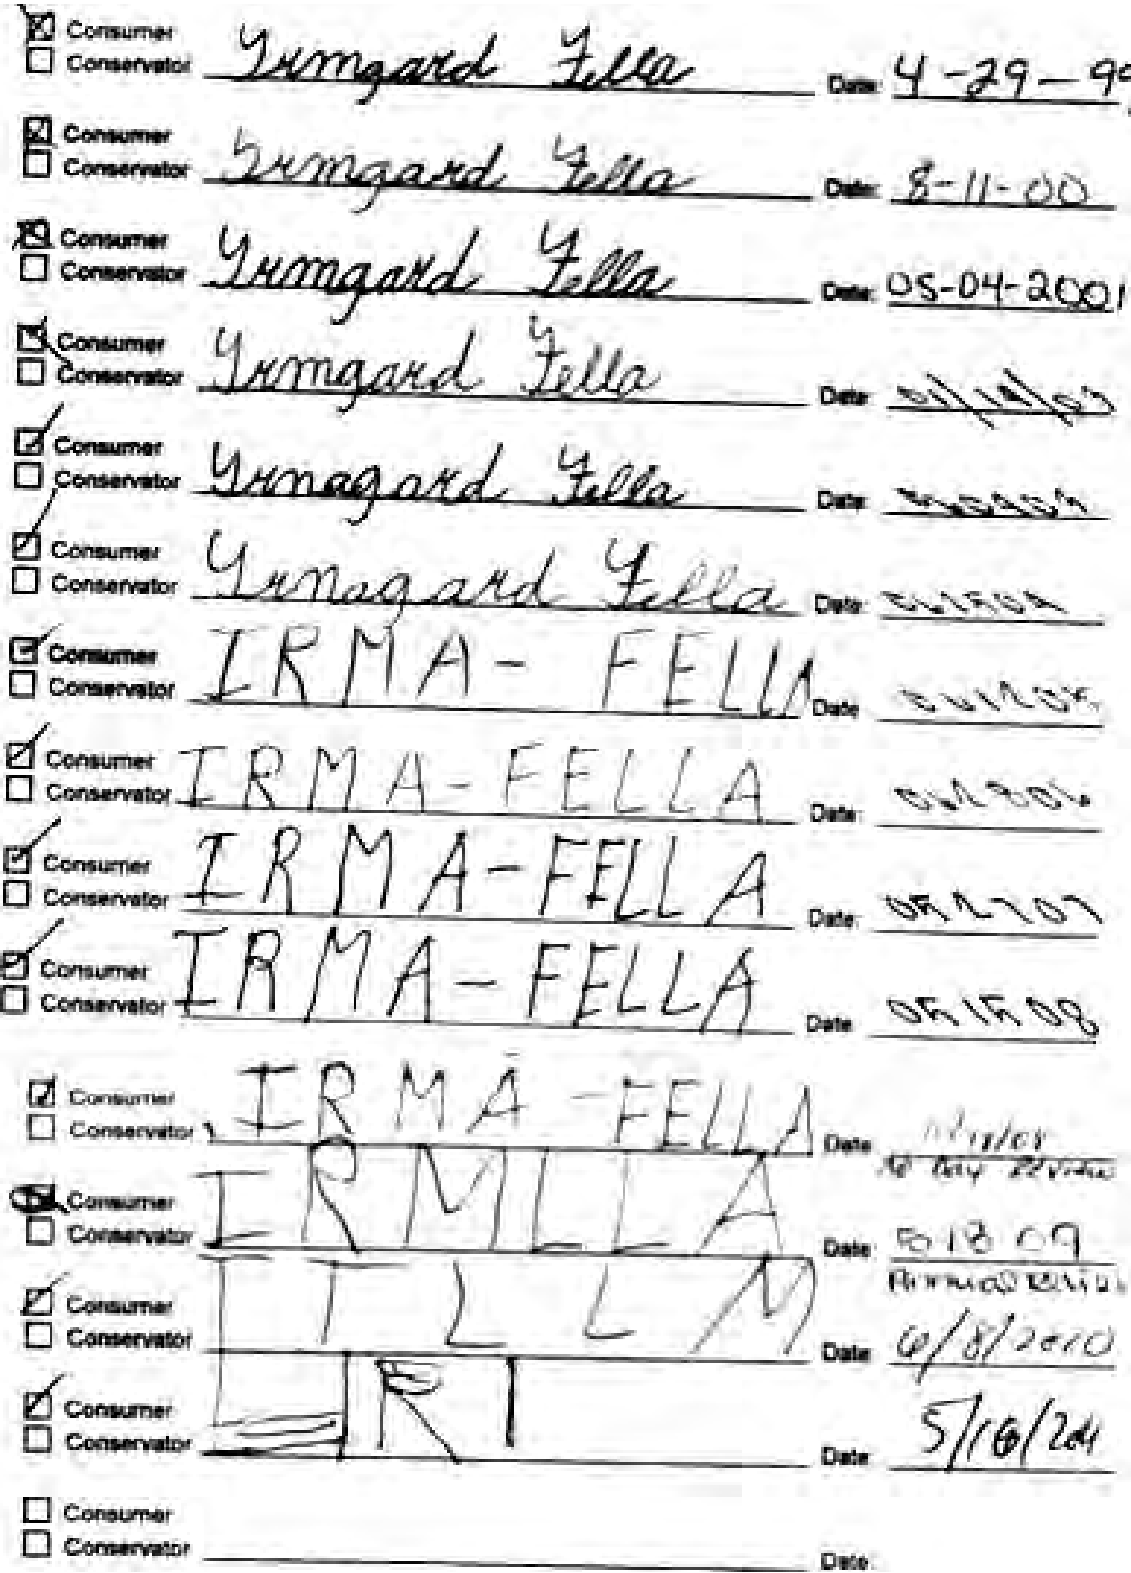 Consumer
Conservator Yrmgard Fella Date: 4-29-99
Consumer
Conservator Yrmgard Fella Date: 8-11-00
Consumer
Conservator Yrmgard Fella Date: 05-04-2001
Consumer
Conservator Yrmgard Fella Date
Consumer
Conservator Yrnagard Fella Date
Consumer
Conservator Yrnagard Fella Date
Consumer
Conservator IRMA- FELLA Date
Consumer
Conservator IRMA-FELLA Date:
Consumer
Conservator IRMA-FELLA Date: 052707
Consumer
Conservator IRMA-FELLA Date 051508
Consumer
Conservator IRMA-FELLA Date
Day Review
Consumer
Conservator IRMLLA Date: 5 18 09
Consumer
Conservator ILLM Date: 6/8/2010
Consumer
Conservator IRI Date: 5/16/2011
Consumer
Conservator Date: